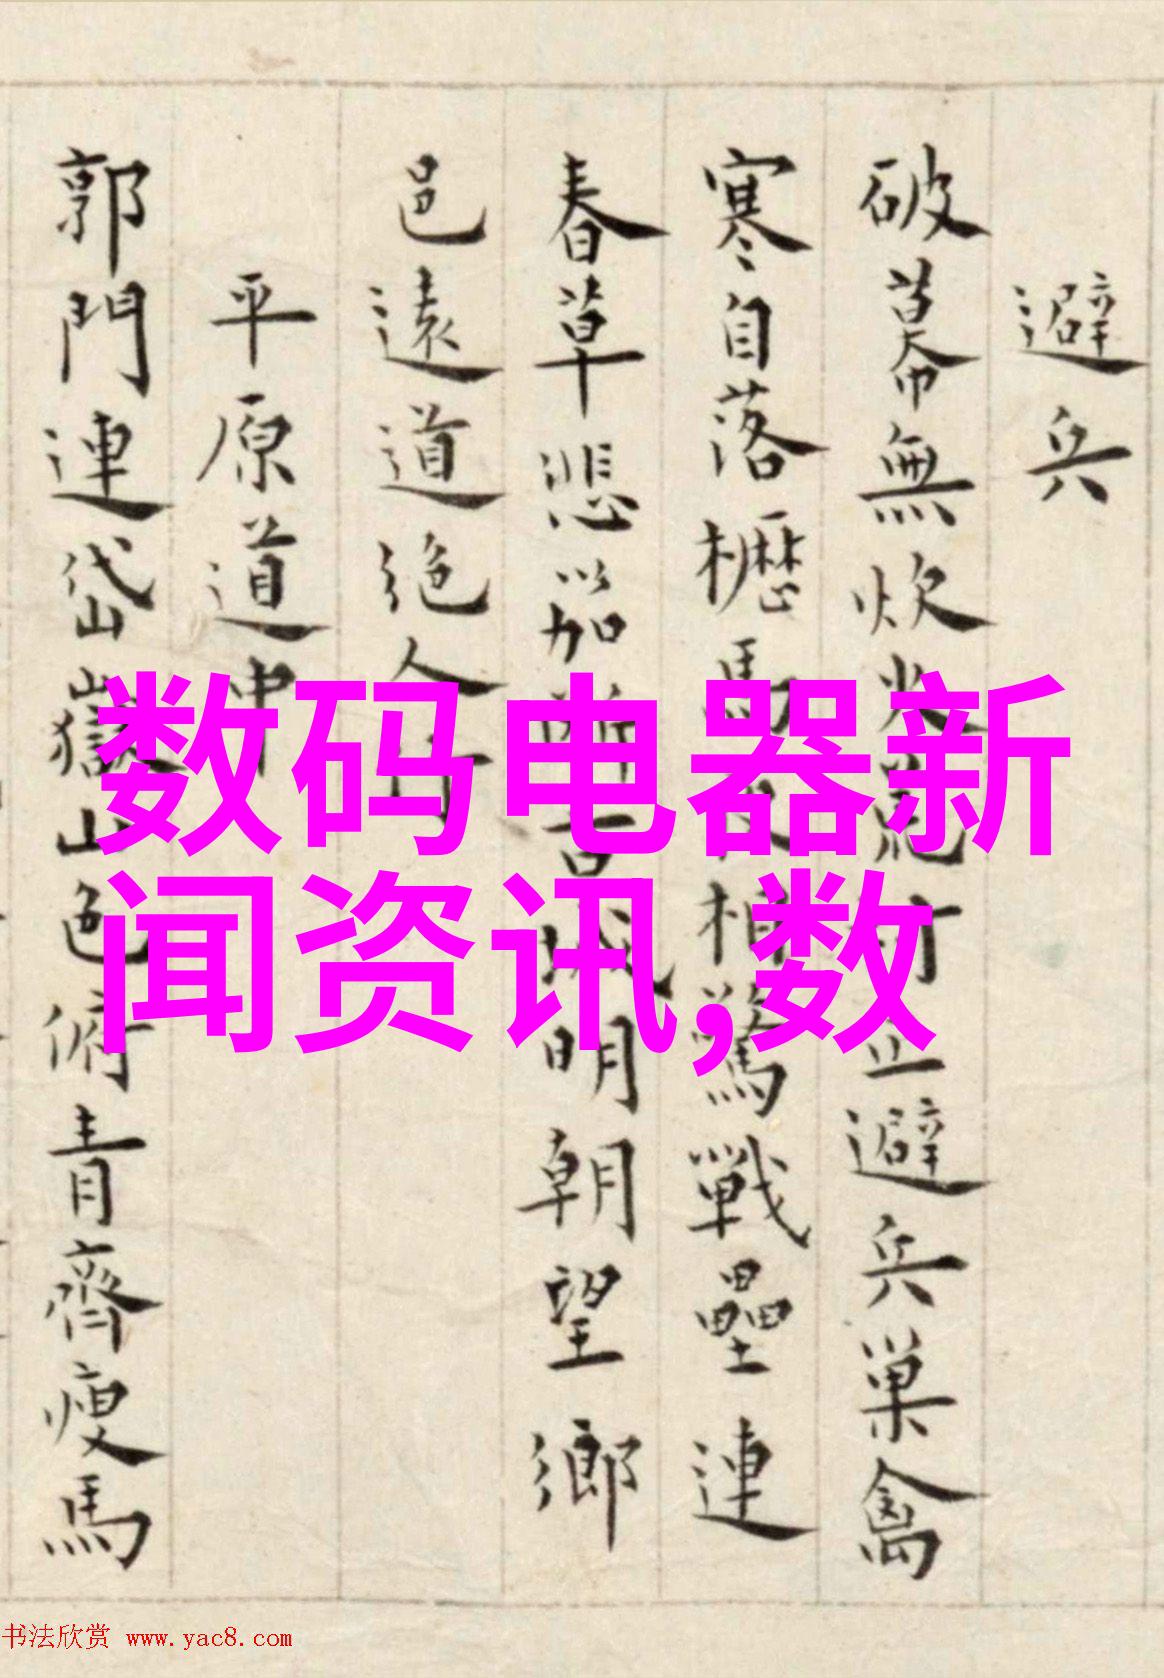 避兵
破幕無炊煙
行止避兵巢禽
寒自落櫪馬
相驚戰壘連
春草悲笳
明朝望鄉
邑遠道絕人
平原道中
郭門連岱嶽山色俯青齊瘦馬
数码电器新
闻资讯,数
书法欣赏 www.yac8.com